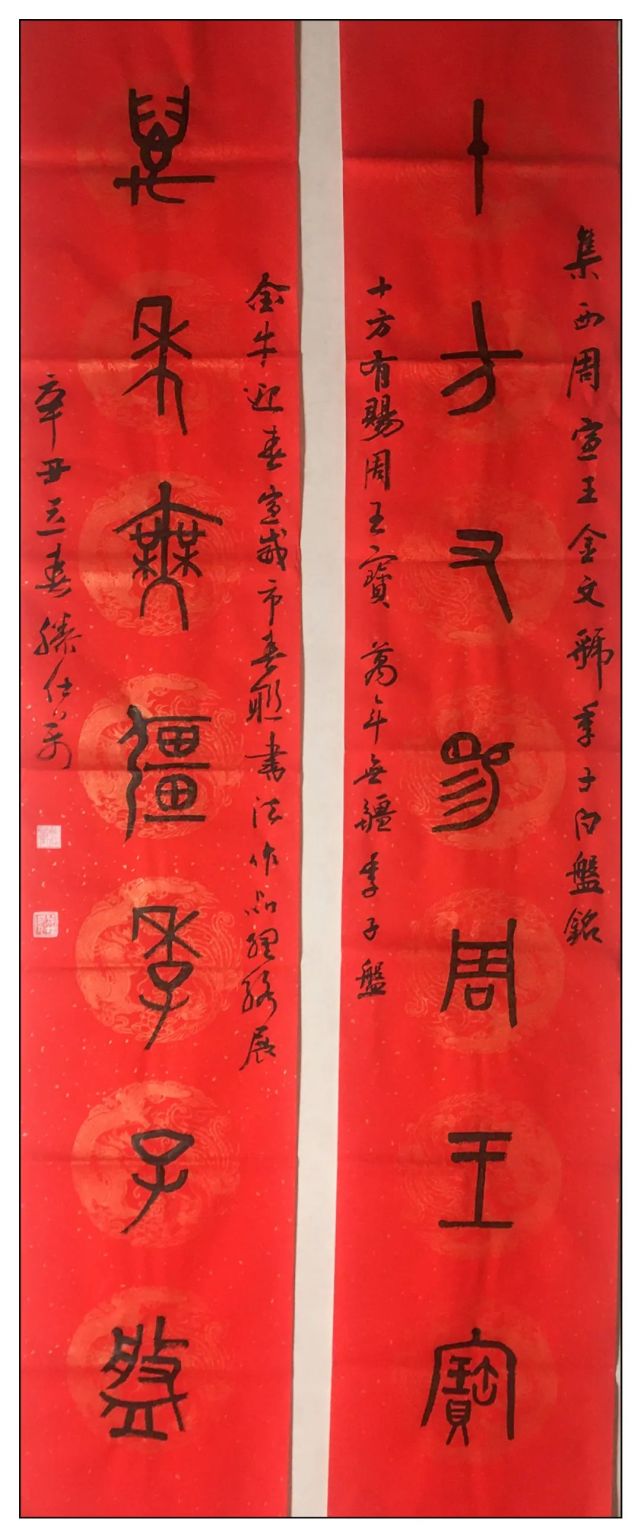 集西周宣王金文虢季子白盤銘
十方又易周王寶
十方有賜周王寶 萬年無疆季子盤
金牛迎春宣威市春聯書法作品網絡展
萬年無彊季子盤
辛丑立春 滕仕万